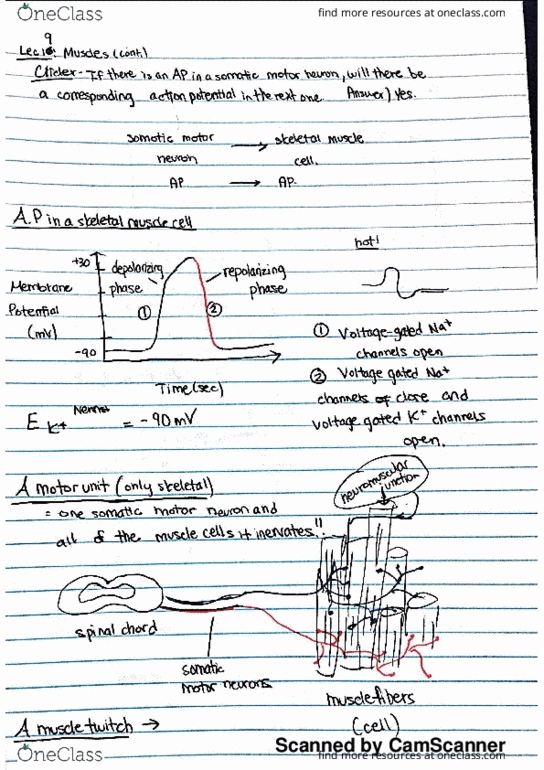 OneClass
find more resources at oneclass.com
9
Lec 10: Muscles (cont.)
Clicker - If there is an AP in a somatic motor neuron, will there be
a corresponding action potential in the next one. Answer) Yes.
somotic motor → skeletal muscle
neuron cell.
AP → AP.
A.P in a skeletal muscle cell
+30
depolarizing
phase
repolarizing
phase
not!
Membrane
Potential
(mV)
①
②
-90
Time (sec)
① Voltage-gated Na+
channels open
② Voltage gated Na+
channels close and
voltage gated K+ channels
open.
E K+ Nernst = -90mV
neuromuscular
junction
A motor unit (only skeletal)
= one somatic motor neuron and
all of the muscle cells it inervates!!
spinal chord
somatic
motor neurons
muscle fibers
(cell)
A muscle twitch →
Scanned by CamScanner
OneClass
find more resources at oneclass.com